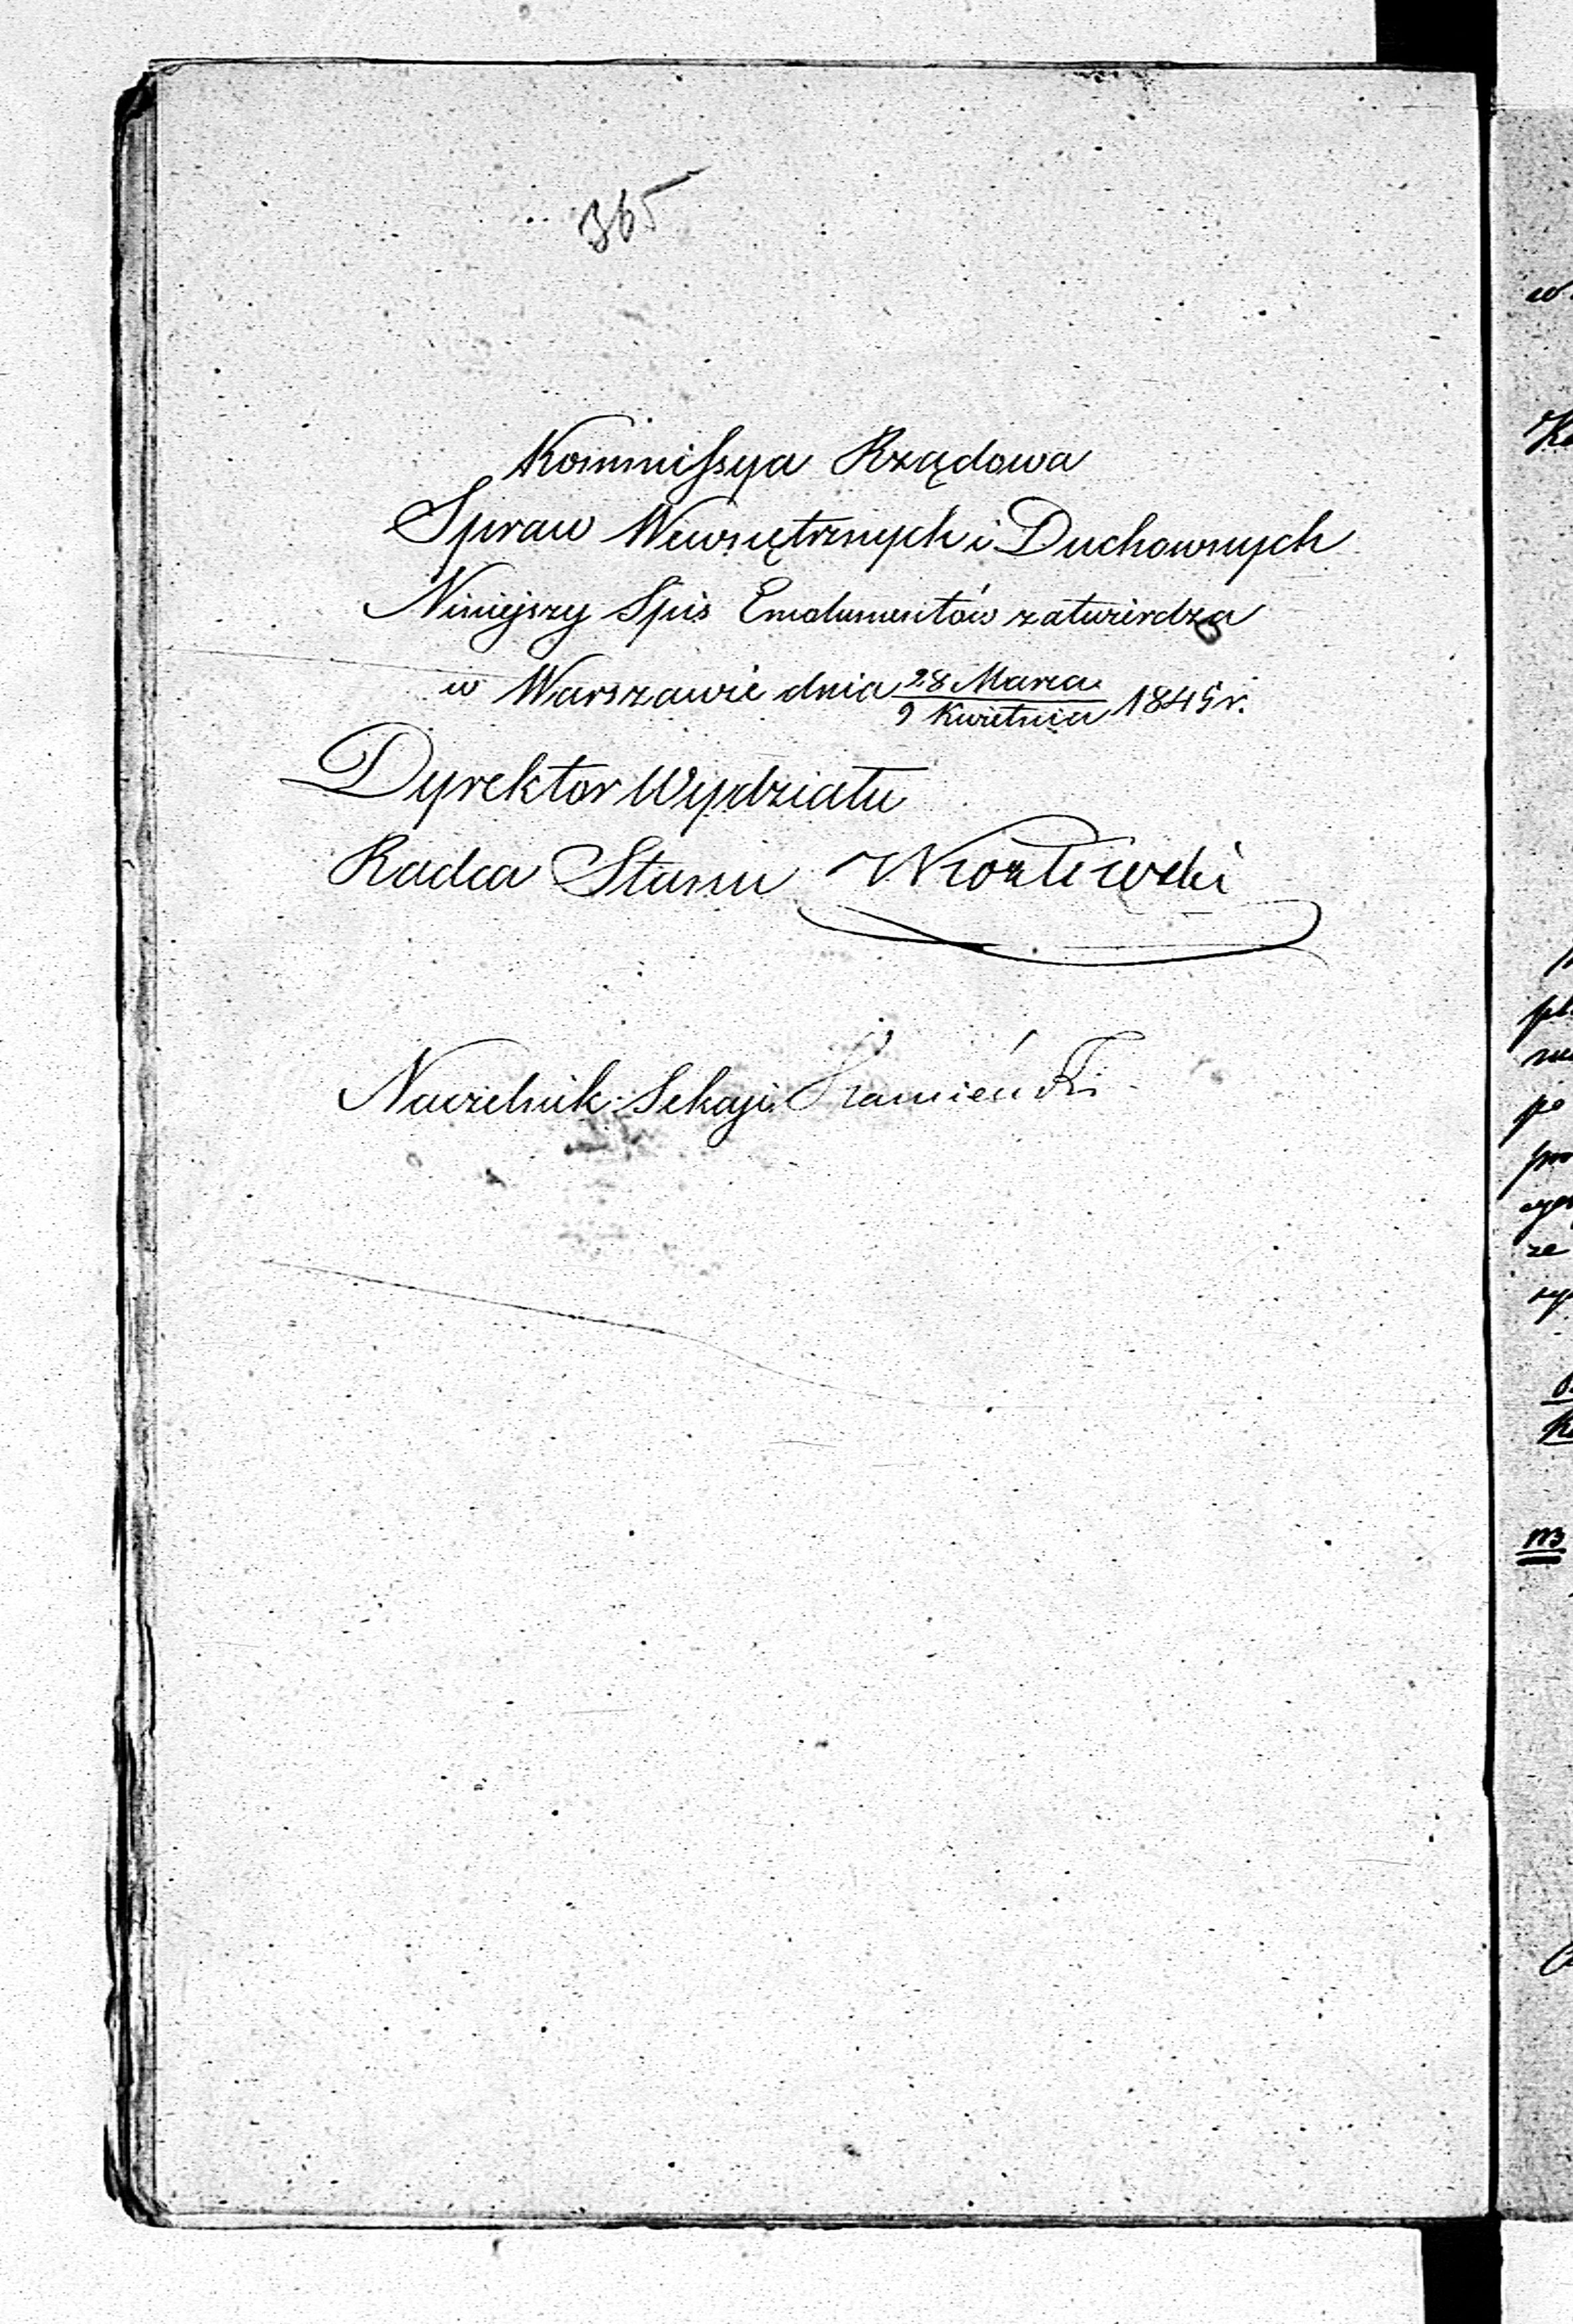 365
Kommissya Rządowa
Spraw Wewnętrznych i Duchownych
Niniejszy Spis Emolumentów zatwierdza
w Warszawie dnia 28 Marca / 9 Kwietnia 1845 r.
Dyrektor Wydziału
Radca Stanu
Naczelnik Sekcyi